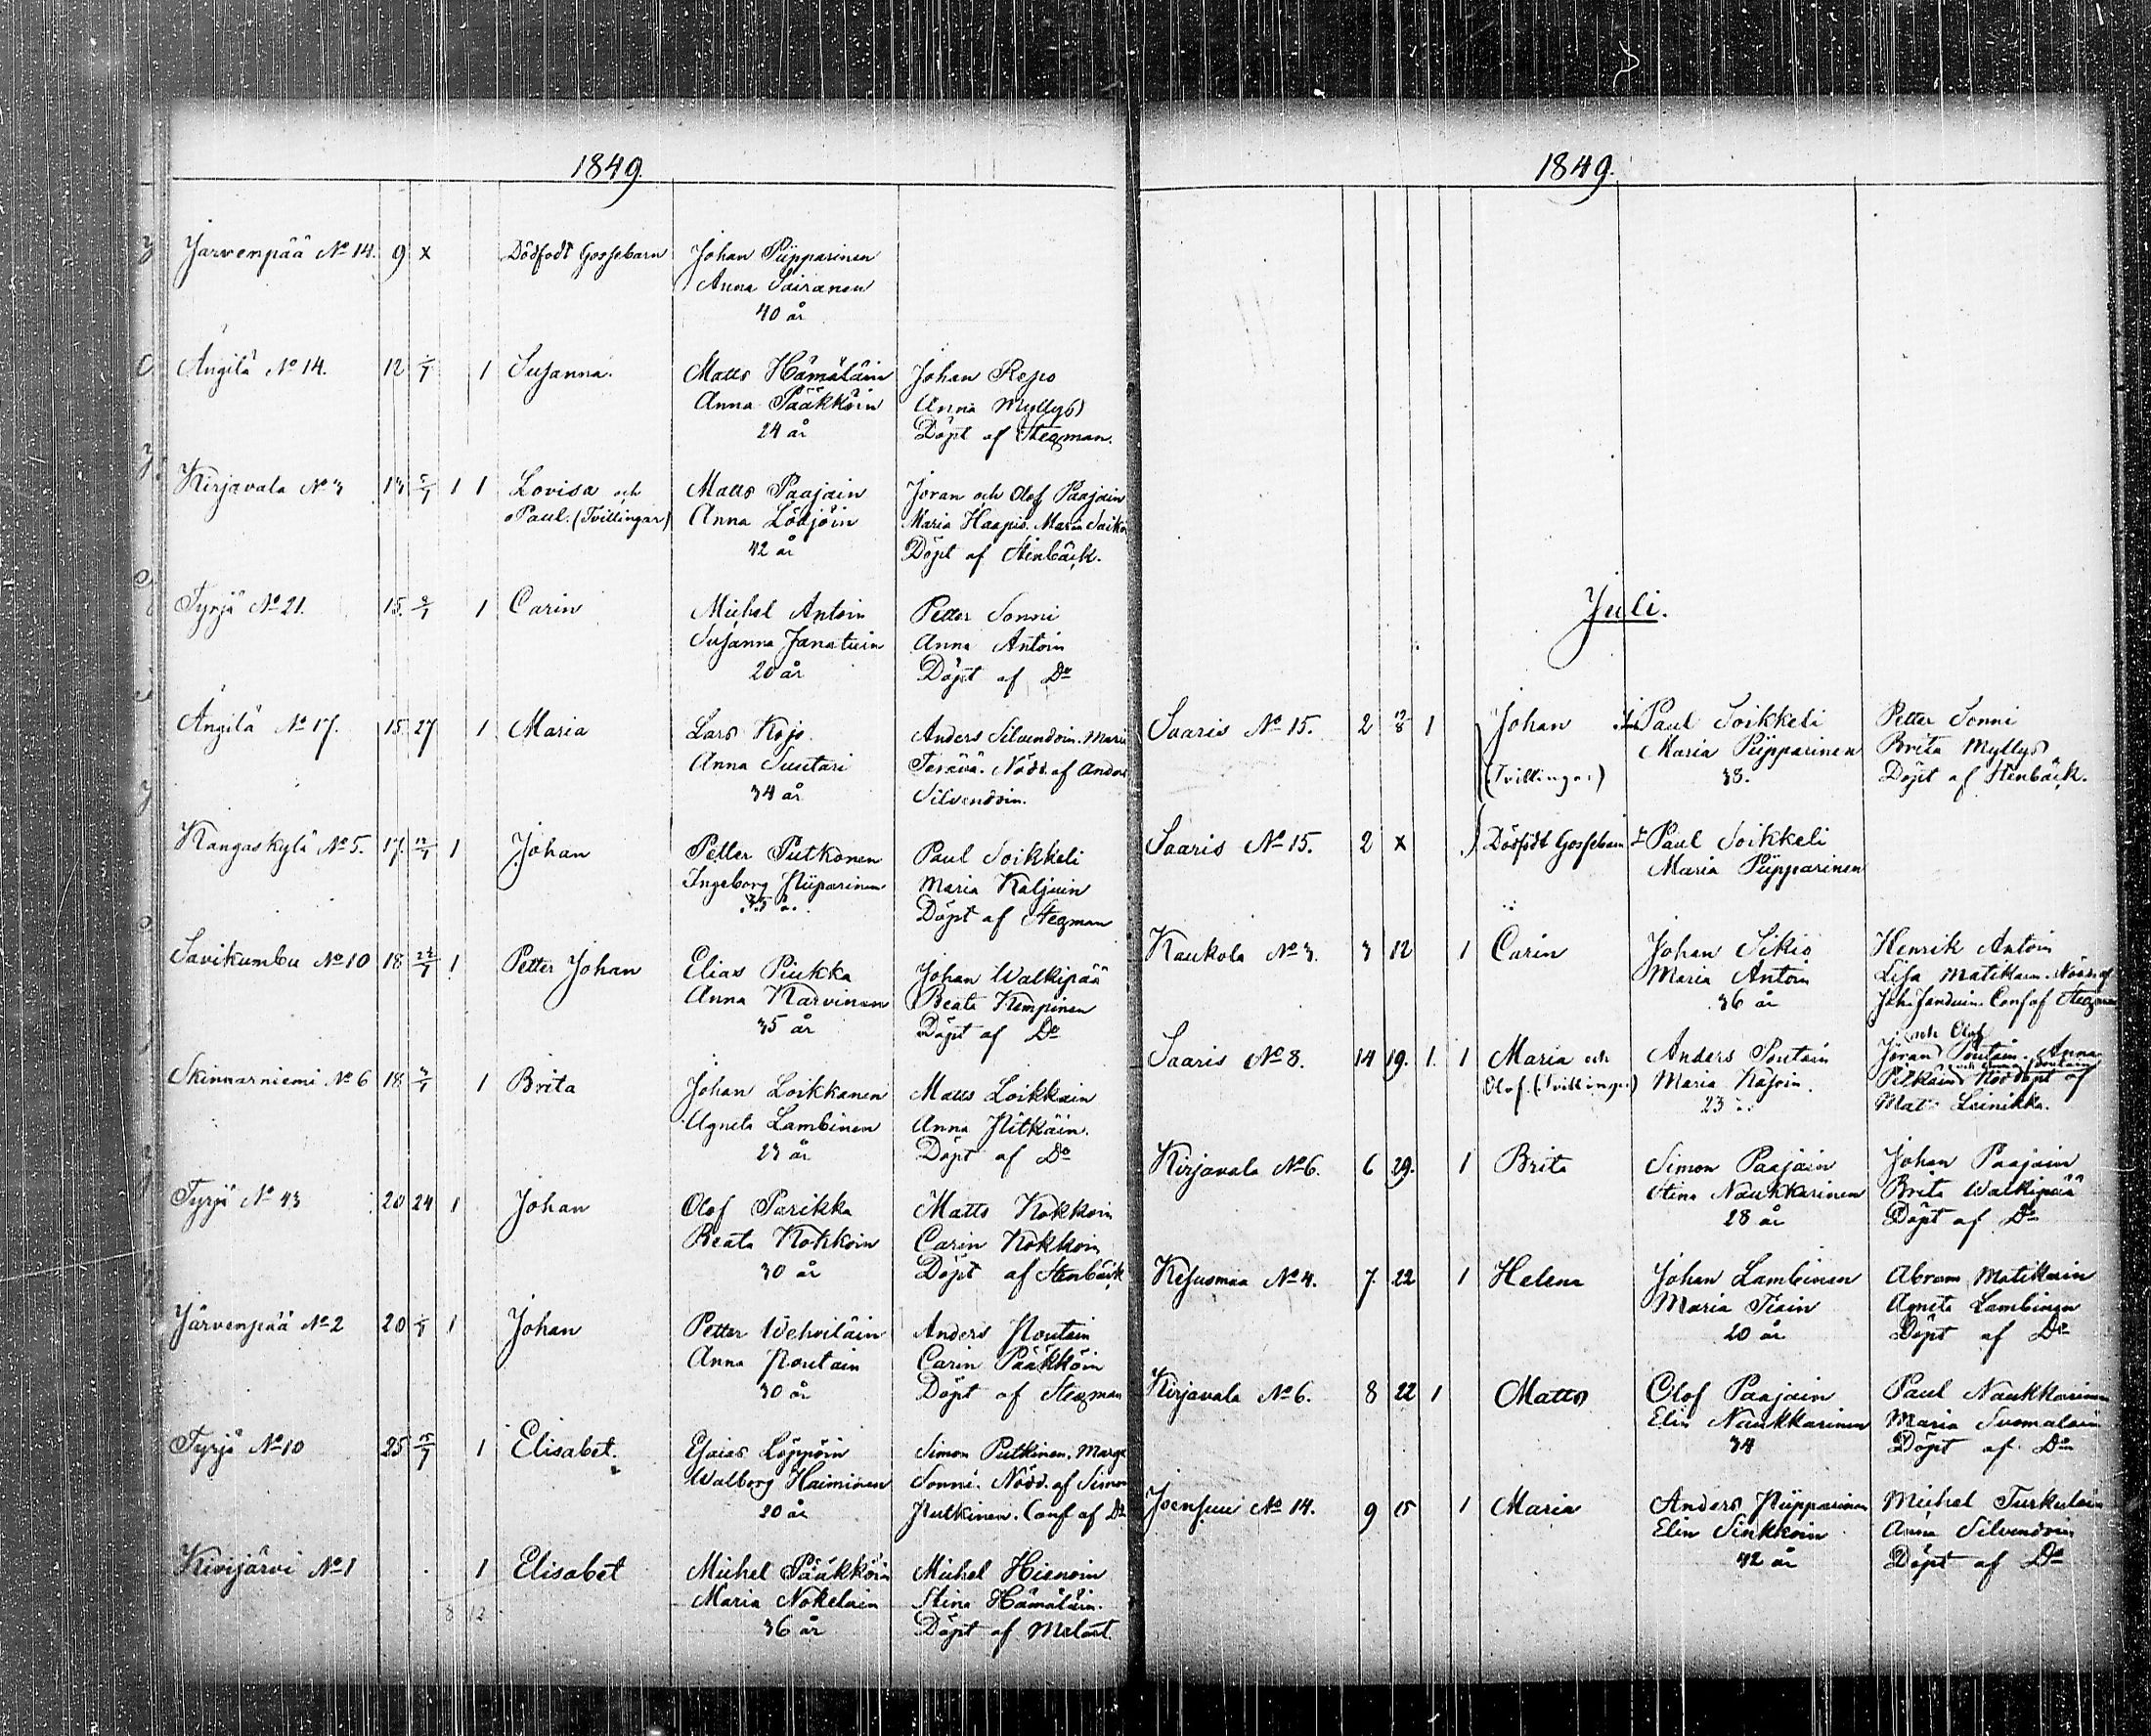 1849.
Järvenpää No 14. 9 x Dödfödt Gossebarn Johan Piipparinen
Anna Sairanen
40 år
Ängilä No 14. 12 1/7 1 Susanna. Matts Hämäläin Johan Repo
Anna Pääkköin Anna Myllys
24 år Döpt af Stegman.
Kirjavala No 3 13 5/7 1 1 Lovisa och Matts Paajain Jöran och Olof Paajain
Paul. (Tvillingar) Anna Lödjöin Maria Haapis. Maria
42 år Döpt af Stenbäck.
Tyrjä No 21. 15. 2/7 1 Carin Michel Antoin Petter Sonni
Susanna Janatuin Anna Antoin
20 år Döpt af Do
Ängilä No 17. 15 27 1 Maria Lars Kojo Anders Silvendoin. Maria
Anna Suutari Terävä. Nödd. af Anders
34 år Silvendoin.
Kangaskylä No 5. 17. 12/7 1 Johan Petter Putkonen Paul Soikkeli
Ingeborg Piiparinen Maria Kaljuin
Döpt af Stegman
Savikumbu No 10 18 22/7 1 Petter Johan Elias Piukka Johan Walkipää
Anna Karvinen Beata Kempinen
35 år Döpt af Do
Skinnarniemi No 6 18 3/7 1 Brita Johan Loikkanen Matts Loikkain
Agneta Lambinen Anna Pitkäin.
23 år Döpt af Do
Tyrjä No 43 20 24 1 Johan Olof Parikka Matts Kokkoin
Beata Kokkoin Carin Kokkoin
30 år Döpt af Stenbäck
Järvenpää No 2 20 1/7 1 Johan Petter Wehviläin Anders Poutain
Anna Poutain Carin Pääkköin
30 år Döpt af Stegman
Tyrjä No 10 25 15/7 1 Elisabet. Esaias Löppöin Simon Putkinen. Marg
Walborg Haiminen Sonni. Nödd. af Simon
20 år Putkinen. Conf af Do
Kivijärvi No 1 1 Elisabet Michel Pääkköin Michel Hienoin
Maria Nokelain Stina Hämäläin.
8 12 36 år Döpt af Melart.
1849.
Juli.
Saaris No 15. 2 12/8 1 Johan Paul Soikkeli Petter Sonni
Maria Piipparinen Brita Myllys
(Tvillingar) 38. Döpt af Stenbäck.
Saaris No 15. 2 x Dödfödt Gossebarn Paul Soikkeli
Maria Piipparinen
Kaukola No 3. 3 12 1 Carin Johan Sikiö Henrik Antoin
Maria Antoin Lisa Matikain. Nödd af
36 år Joh. Janduin. Conf af Stegman
och Olof
Saaris No 8. 14 19. 1. 1 Maria och Anders Poutain Jöran Poutain. Anna
Olof. (Tvillingar) Maria Kåsoin. Pitkäin Nöddöpt af
23 Matts Leinikka.
Kirjavala No 6. 6 29. 1 Brita Simon Paajain Johan Paajain
Stina Naukkarinen Brita Walkipää
28 år Döpt af Do
Kesusmaa No 4. 7. 22 1 Helena Johan Lambinen Abram Matikain
Maria Tiain Agneta Lambinen
20 år Döpt af Do
Kirjavala No 6. 8 22 1 Matts Olof Paajain Paul Naukkarinen
Elin Naukkarinen Maria Suomalain
34 Döpt af Do
Joensuu No 14. 9 15 1 Maria Anders Piipparinen Michel Turkulain
Elin Sinkkoin Anna Silvendoin
42 år Döpt af Do